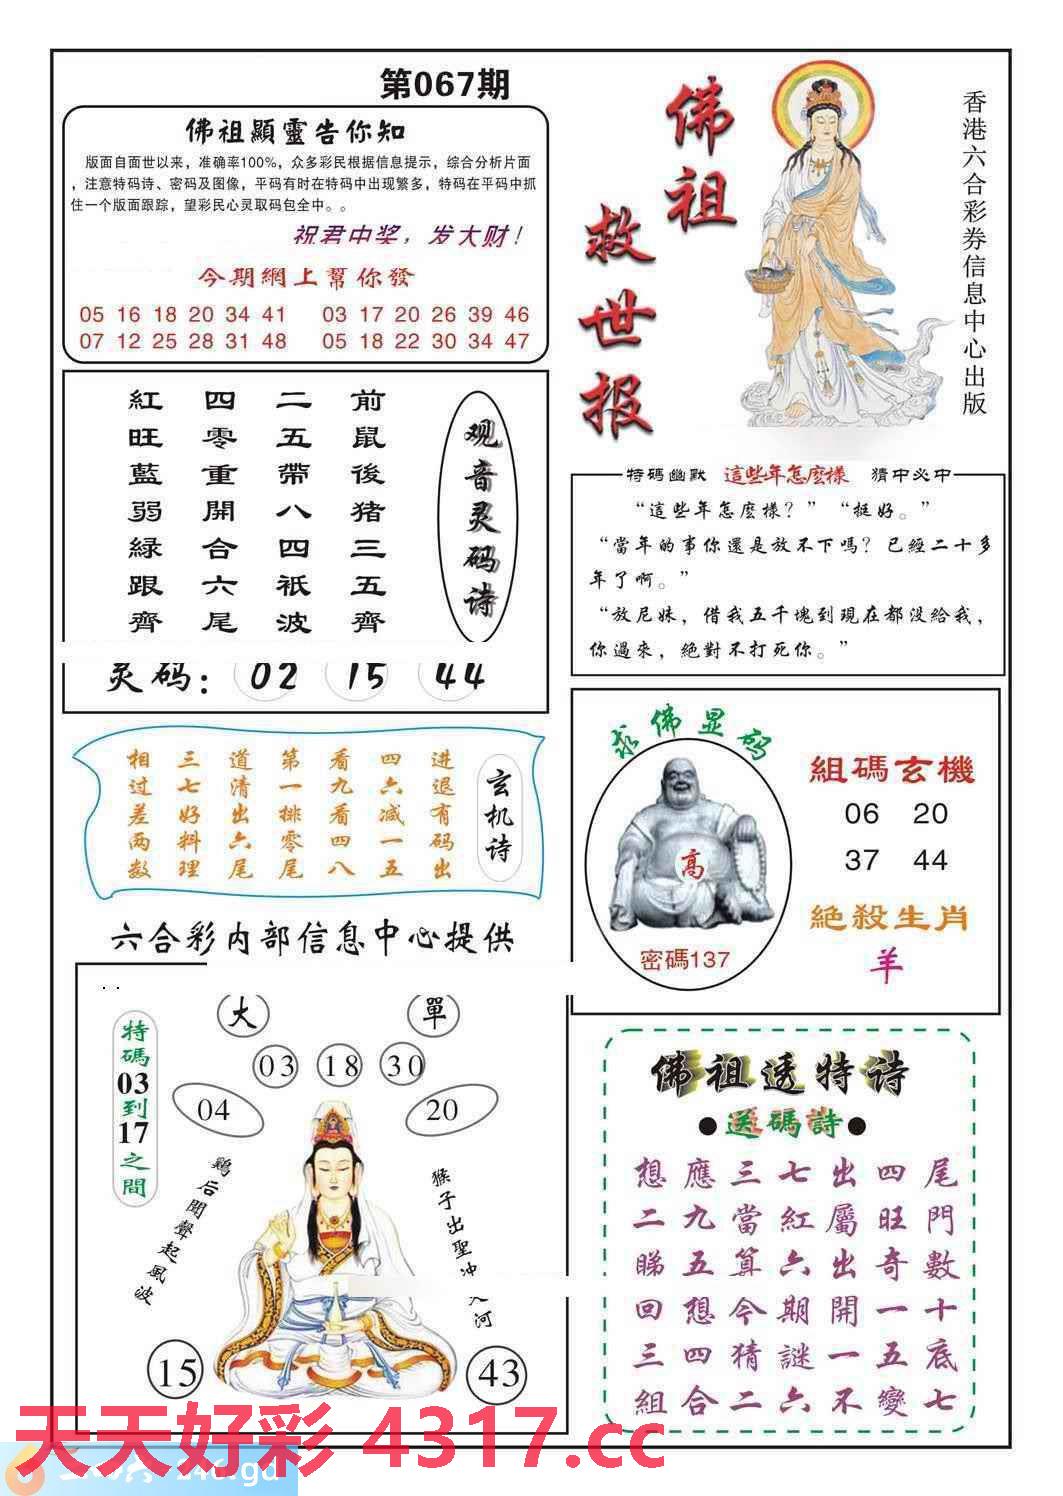 第067期
佛祖顯靈告你知
版面自面世以来，准确率100%，众多彩民根据信息提示，综合分析片面
，注意特码诗、密码及图像，平码有时在特码中出现繁多，特码在平码中抓
住一个版面跟踪，望彩民心灵取码包全中。。
祝君中奖，发大财！
今期網上幫你發
05 16 18 20 34 41 03 17 20 26 39 46
07 12 25 28 31 48 05 18 22 30 34 47
佛祖
救世报
香港六合彩券信息中心出版
观音灵码诗
前鼠後猪三五齊
二五帶八四祇波
四零重開合六尾
紅旺藍弱緑跟齊
灵码： 02 15 44
特碼幽默 這些年怎麽樣 猜中必中
“這些年怎麽樣？”“挺好。”
“當年的事你還是放不下嗎？已經二十多
年了啊。”
“放尼妹，借我五千塊到現在都没給我，
你過來，絶對不打死你。”
玄机诗
进退有码出
四六减一五
看九看四八
第一排零尾
道清出六尾
三七好料理
相过差两数
求佛显码
高
密碼137
組碼玄機
06 20
37 44
絕殺生肖
羊
六合彩内部信息中心提供
大 單
03 18 30
04 20
特碼03到17之間
鷄后聞聲起風波
猴子出聖冲 河
15 43
佛祖透特诗
●送碼詩●
想應三七出四尾
二九當紅屬旺門
睇五算六出奇數
回想今期開一十
三四猜謎一五底
組合二六不變七
天天好彩 4317.cc
246.gd